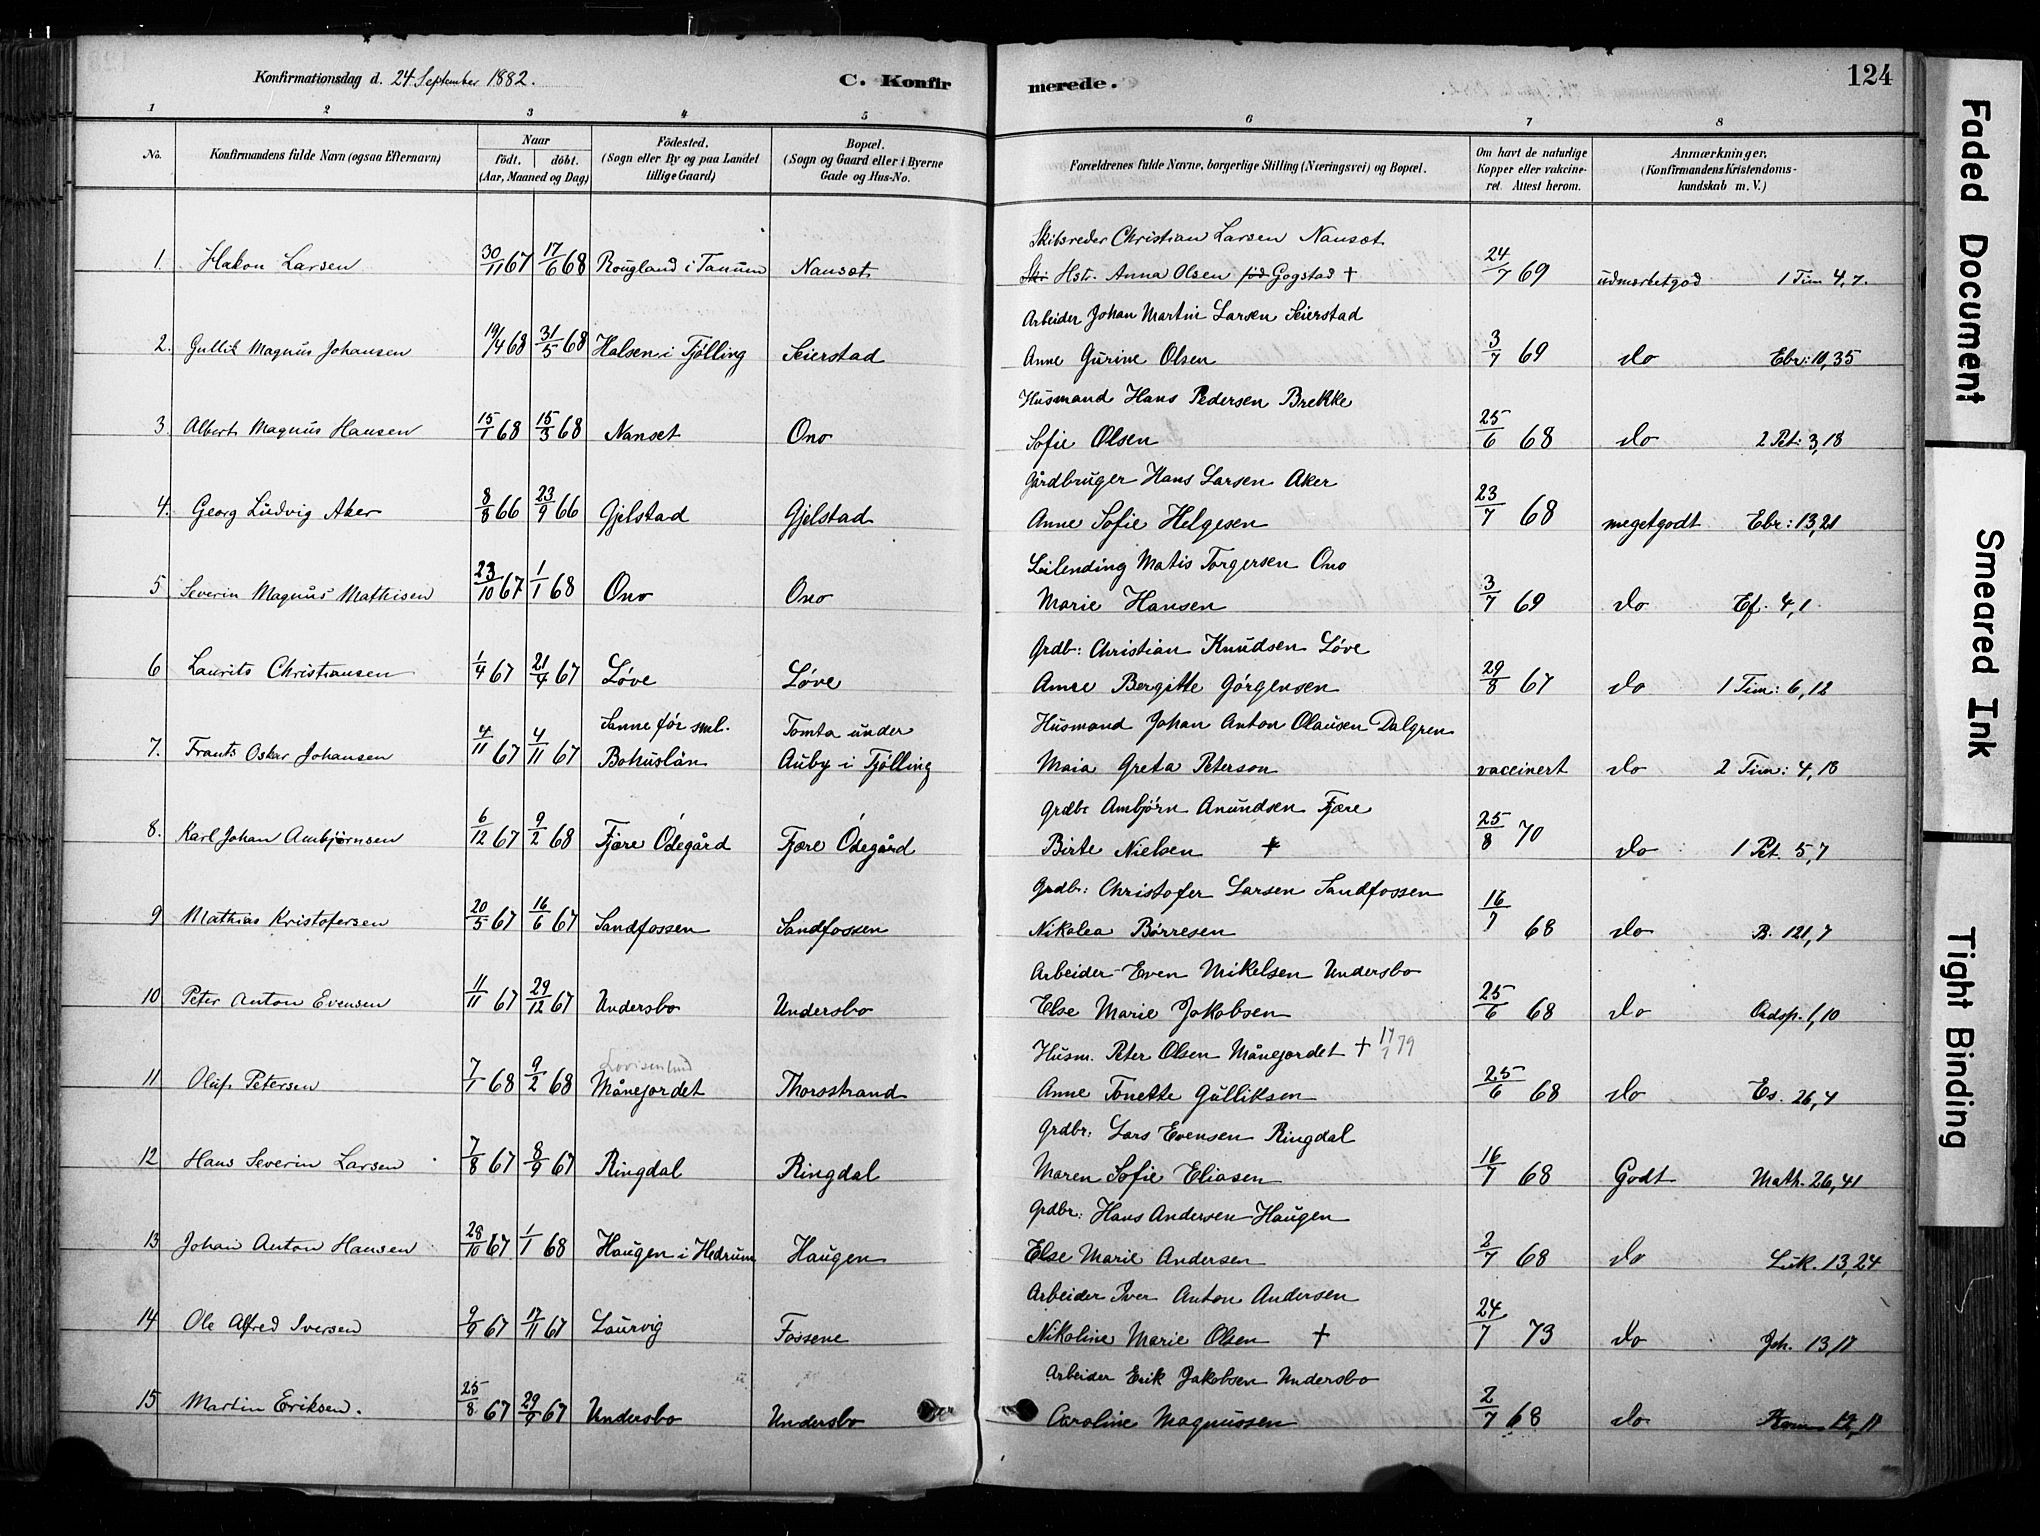 Konfirmationsdag d. 24 September 1882.
C. Konfirmerede.
124
1 2 3 4 5 6 7 8
No.
Konfirmandens fulde Navn (ogsaa Efternavn)
Naar
født. døbt.
(Aar, Maaned og Dag)
Fødested.
(Sogn eller By og paa Landet
tillige Gaard)
Bopæl.
(Sogn og Gaard eller i Byerne
Gade og Hus-No.
Forældrenes fulde Navne, borgerlige Stilling (Næringsvei) og Bopæl.
Om havt de naturlige
Kopper eller vakcine-
ret Attest herom.
Anmærkninger,
(Konfirmandens Kristendoms-
kundskab m. V.)
Skibsreder Christian Larsen Nanset
1. Hakon Larsen 30/11 67 17/6 68 Rougland i Tanum Nanset Hstr. Anna Olsen fød Gogstad † 24/7 69 udmærketgod 1 Tim 4, 7.
Arbeider Johan Martin Larsen Seierstad
2. Gullik Magnus Johansen 19/4 68 31/5 68 Halsen i Tjølling Seierstad Anne Gurine Olsen 3/7 69 do Ebr: 10, 35
Husmand Hans Pedersen Brekke
3. Albert Magnus Hansen 15/1 68 15/3 68 Nanset Ono Sofie Olsen 25/6 68 do 2 Pet: 3, 18
Gårdbruger Hans Larsen Aker
4. Georg Ludvig Aker 8/8 66 23/9 66 Gjelstad Gjelstad Anne Sofie Helgesen 23/7 68 megetgodt Ebr: 13, 21
Leilending Matis Torgersen Ono
5 Severin Magnus Mathisen 23/10 67 1/1 68 Ono Ono Marie Hansen 3/7 69 do Ef. 4, 1
Grdb: Christian Knudsen Løve
6 Laurits Christiansen 1/4 67 21/4 67 Løve Løve Anne Bergitte Jørgensen 29/8 67 do 1 Tim: 6, 12
Sanne før sml. Tomta under Husmand Johan Anton Olausen Dalgren
7. Frants Oskar Johansen 4/11 67 4/11 67 Bohuslän Auby i Tjølling Maia Greta Peterson vaccinert do 2 Tim: 4, 18
Grdbr Ambjørn Anundsen Fjære
8. Karl Johan Ambjørnsen 6/12 67 9/2 68 Fjære Ödegård Fjære Ödegård Birte Nielsen † 25/8 70 do 1 Pet. 5, 7
Grdbr: Christofer Larsen Sandfossen
9 Mathias Kristofersen 20/5 67 16/6 67 Sandfossen Sandfossen Nikolea Børresen 16/7 68 do P. 121, 7
Arbeider Even Mikelsen Undersbo
10 Peter Anton Evensen 11/11 67 29/12 67 Undersbo Undersbo Else Marie Jakobsen 25/6 68 do Ordsp. 1, 10
Lovisenlund Husm. Peter Olsen Månejordet † 17/1 79
11 Oluf Petersen 7/1 68 9/2 68 Månejordet Thorsstrand Anne Tonette Gulliksen 25/6 68 do Es. 26, 4
Grdbr: Lars Evensen Ringdal
12 Hans Severin Larsen 7/8 67 8/9 67 Ringdal Ringdal Maren Sofie Eliasen 16/7 68 Godt Math. 26, 41
Grdbr: Hans Andersen Haugen
13 Johan Anton Hansen 28/10 67 1/1 68 Haugen i Hedrum Haugen Else Marie Andersen 2/7 68 do Luk. 13, 24
Arbeider Iver Anton Andersen
14 Ole Alfred Iversen 9/9 67 17/11 67 Laurvig Fossene Nikoline Marie Olsen † 24/7 73 do Joh. 13, 17
Arbeider Erik Jakobsen Undersbo
15 Martin Eriksen. 25/8 67 29/9 67 Undersbo Undersbo Caroline Magnussen 2/7 68 do Rom 12, 11
Faded Document
Smeared Ink
Tight Binding